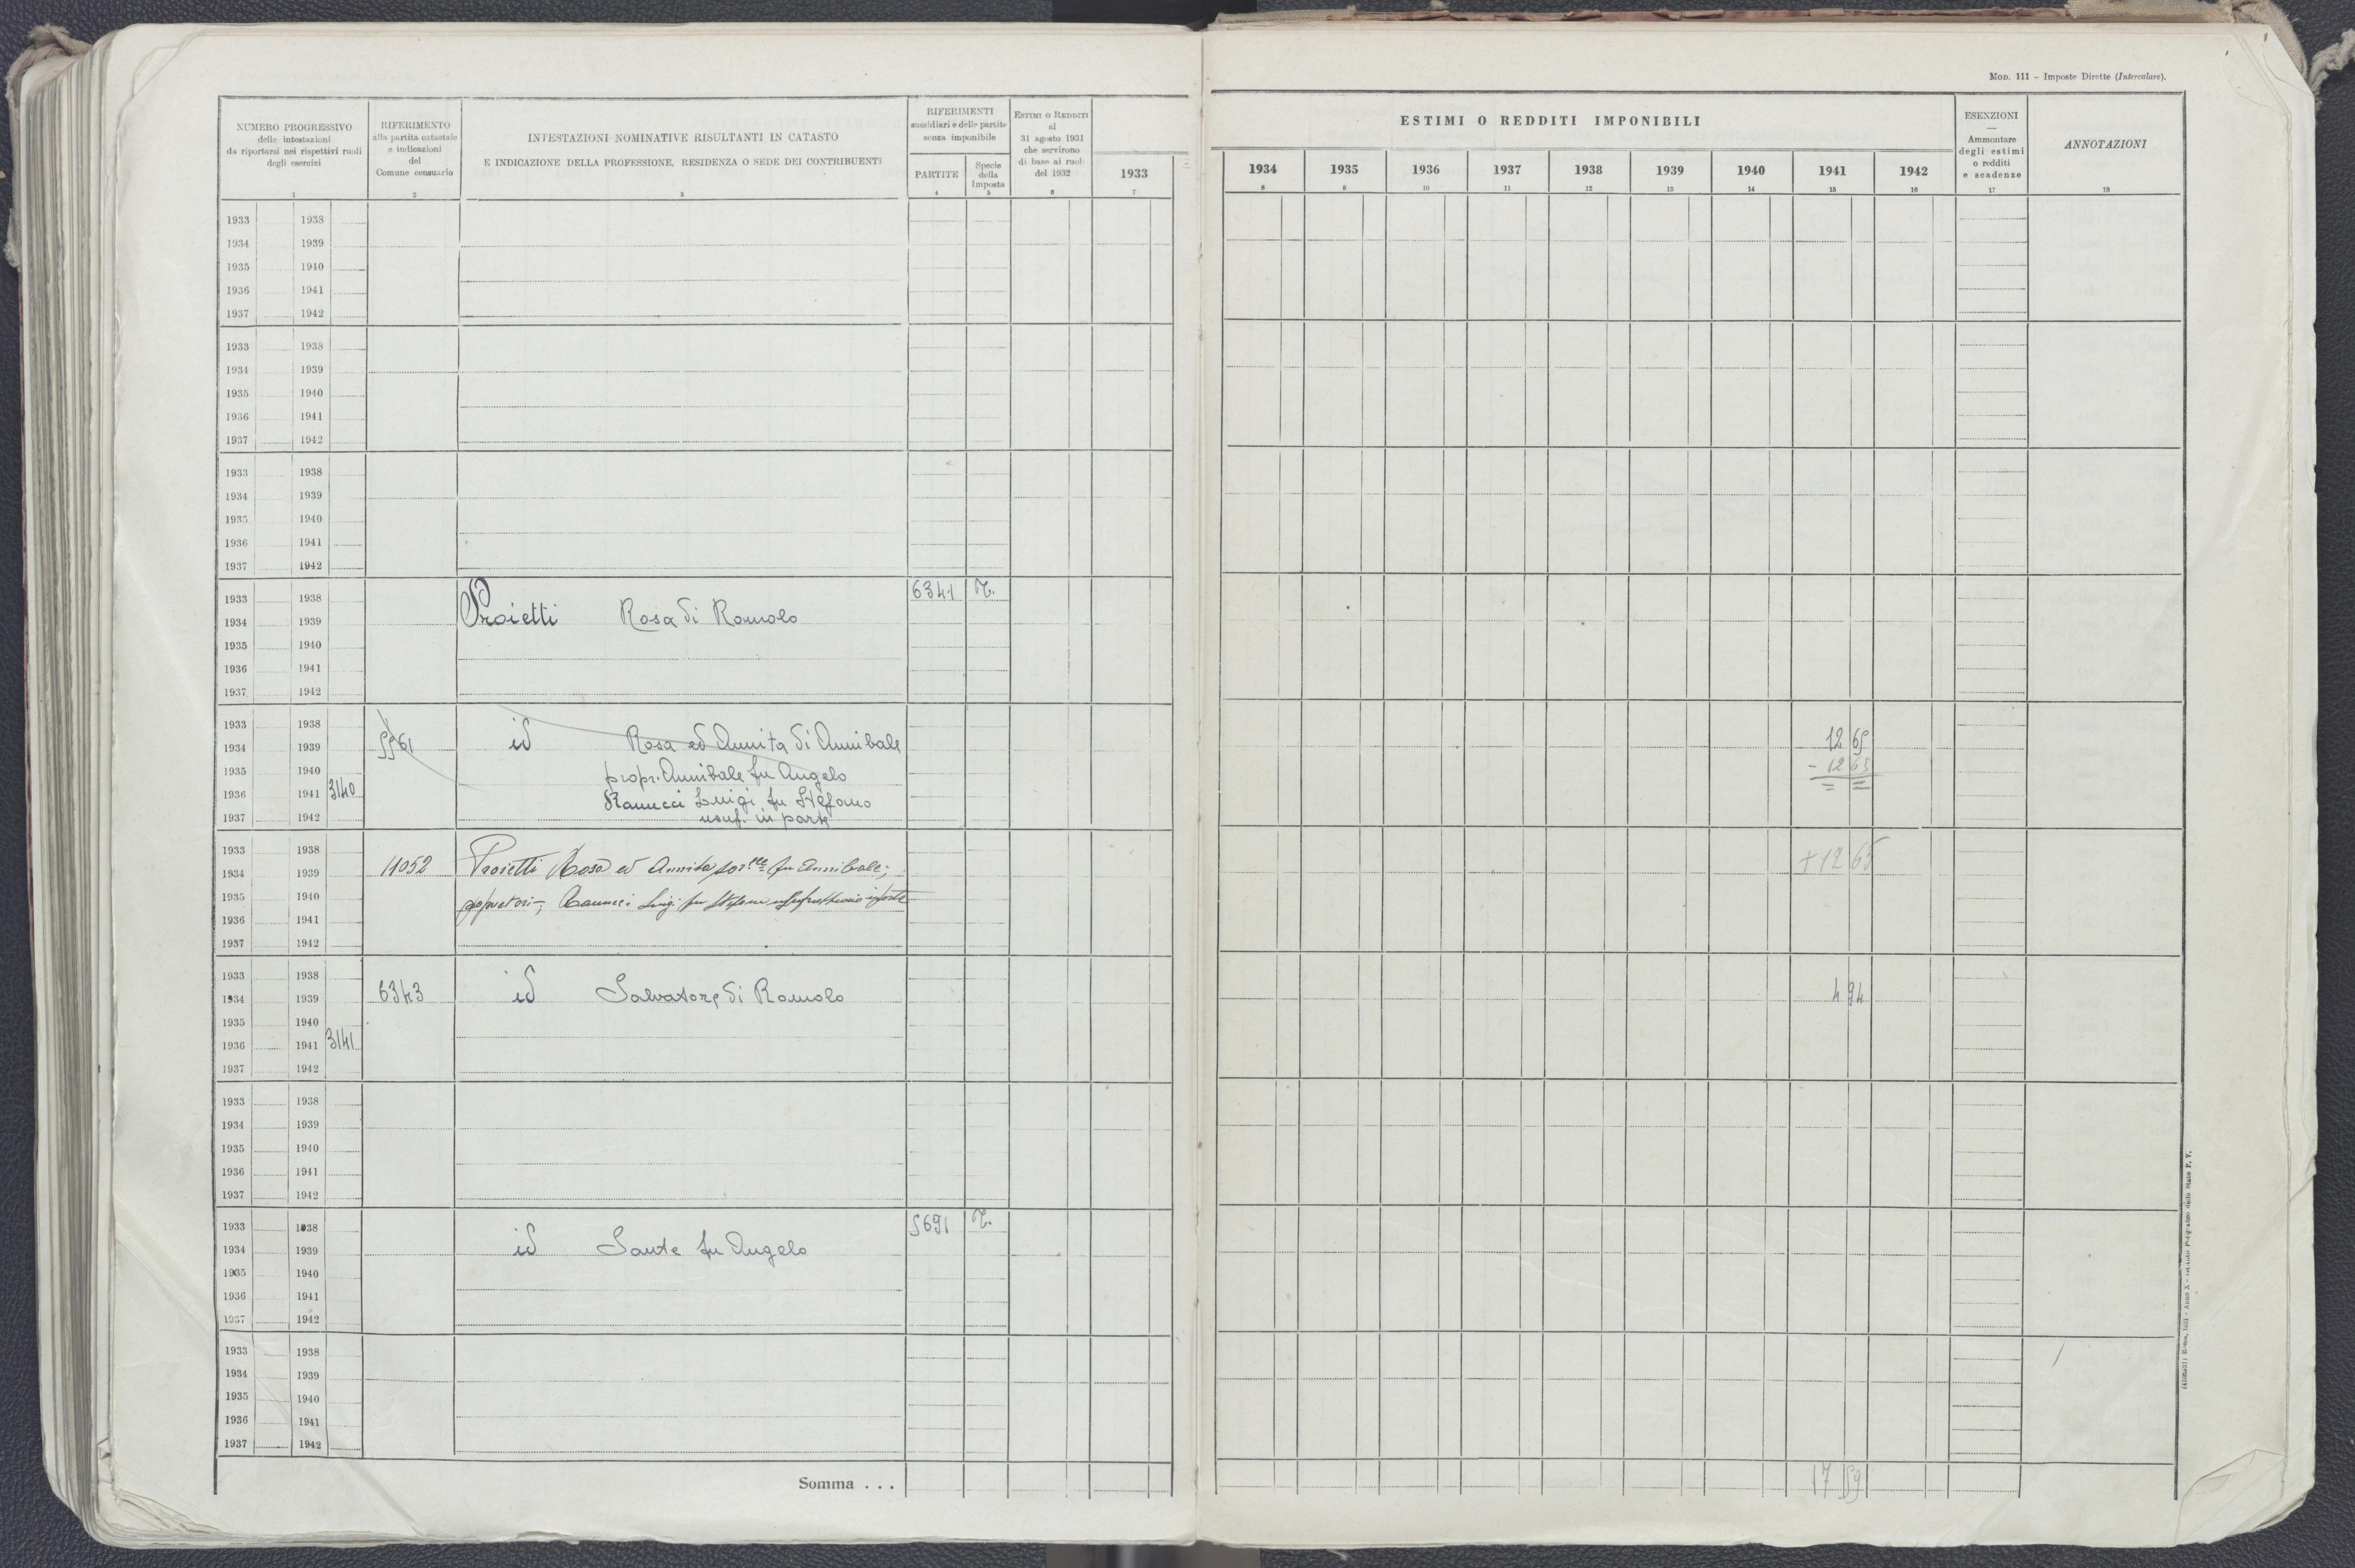 MOD. 111 - Imposte Dirette (Intercalare).
NUMERO PROGRESSIVO
delle intestazioni
da riportarsi nei rispettivi ruoli
degli esercizi
1
RIFERIMENTO
alla partita catastale
e indicazioni
del
Comune censuario
2
INTESTAZIONI NOMINATIVE RISULTANTI IN CATASTO
E INDICAZIONE DELLA PROFESSIONE, RESIDENZA O SEDE DEI CONTRIBUENTI
3
RIFERIMENTI
sussidiari e delle partite
senza imponibile
PARTITE
4
Specie
della
Imposta
5
ESTIMI O REDDITI
al
31 agosto 1931
che servirono
di base ai ruoli
del 1932
6
1933
7
ESTIMI O REDDITI IMPONIBILI
1934 1935 1936 1937 1938 1939 1940 1941 1942
8 9 10 11 12 13 14 15 16
ESENZIONI
—
Ammontare
degli estimi
o redditi
e scadenze
17
ANNOTAZIONI
18
1933 1938
1934 1939
1935 1940
1936 1941
1937 1942
1933 1938
1934 1939
1935 1940
1936 1941
1937 1942
1933 1938
1934 1939
1935 1940
1936 1941
1937 1942
1933 1938 6341 T.
1934 1939 Proietti Rosa di Romolo
1935 1940
1936 1941
1937 1942
1933 1938
1934 1939 5961 id Rosa ed Annita di Annibale 12 65
1935 1940 propr. Annibale fu Angelo - 12 65
1936 1941 3140 Ranucci Luigi fu Stefano
1937 1942 usuf. in parte
1933 1938
1934 1939 11052 Proietti Rosa ed Annita sor.lle fu Annibale; + 12 65
1935 1940 Ranucci Luigi fu Stefano
1936 1941
1937 1942
1933 1938
1934 1939 6343 id Salvatore di Romolo 4 94
1935 1940
1936 1941 3141
1937 1942
1933 1938
1934 1939
1935 1940
1936 1941
1937 1942
1933 1938 5691 T.
1934 1939 id Sante fu Angelo
1935 1940
1936 1941
1937 1942
1933 1938
1934 1939
1935 1940
1936 1941
1937 1942
Somma . . . 17 59